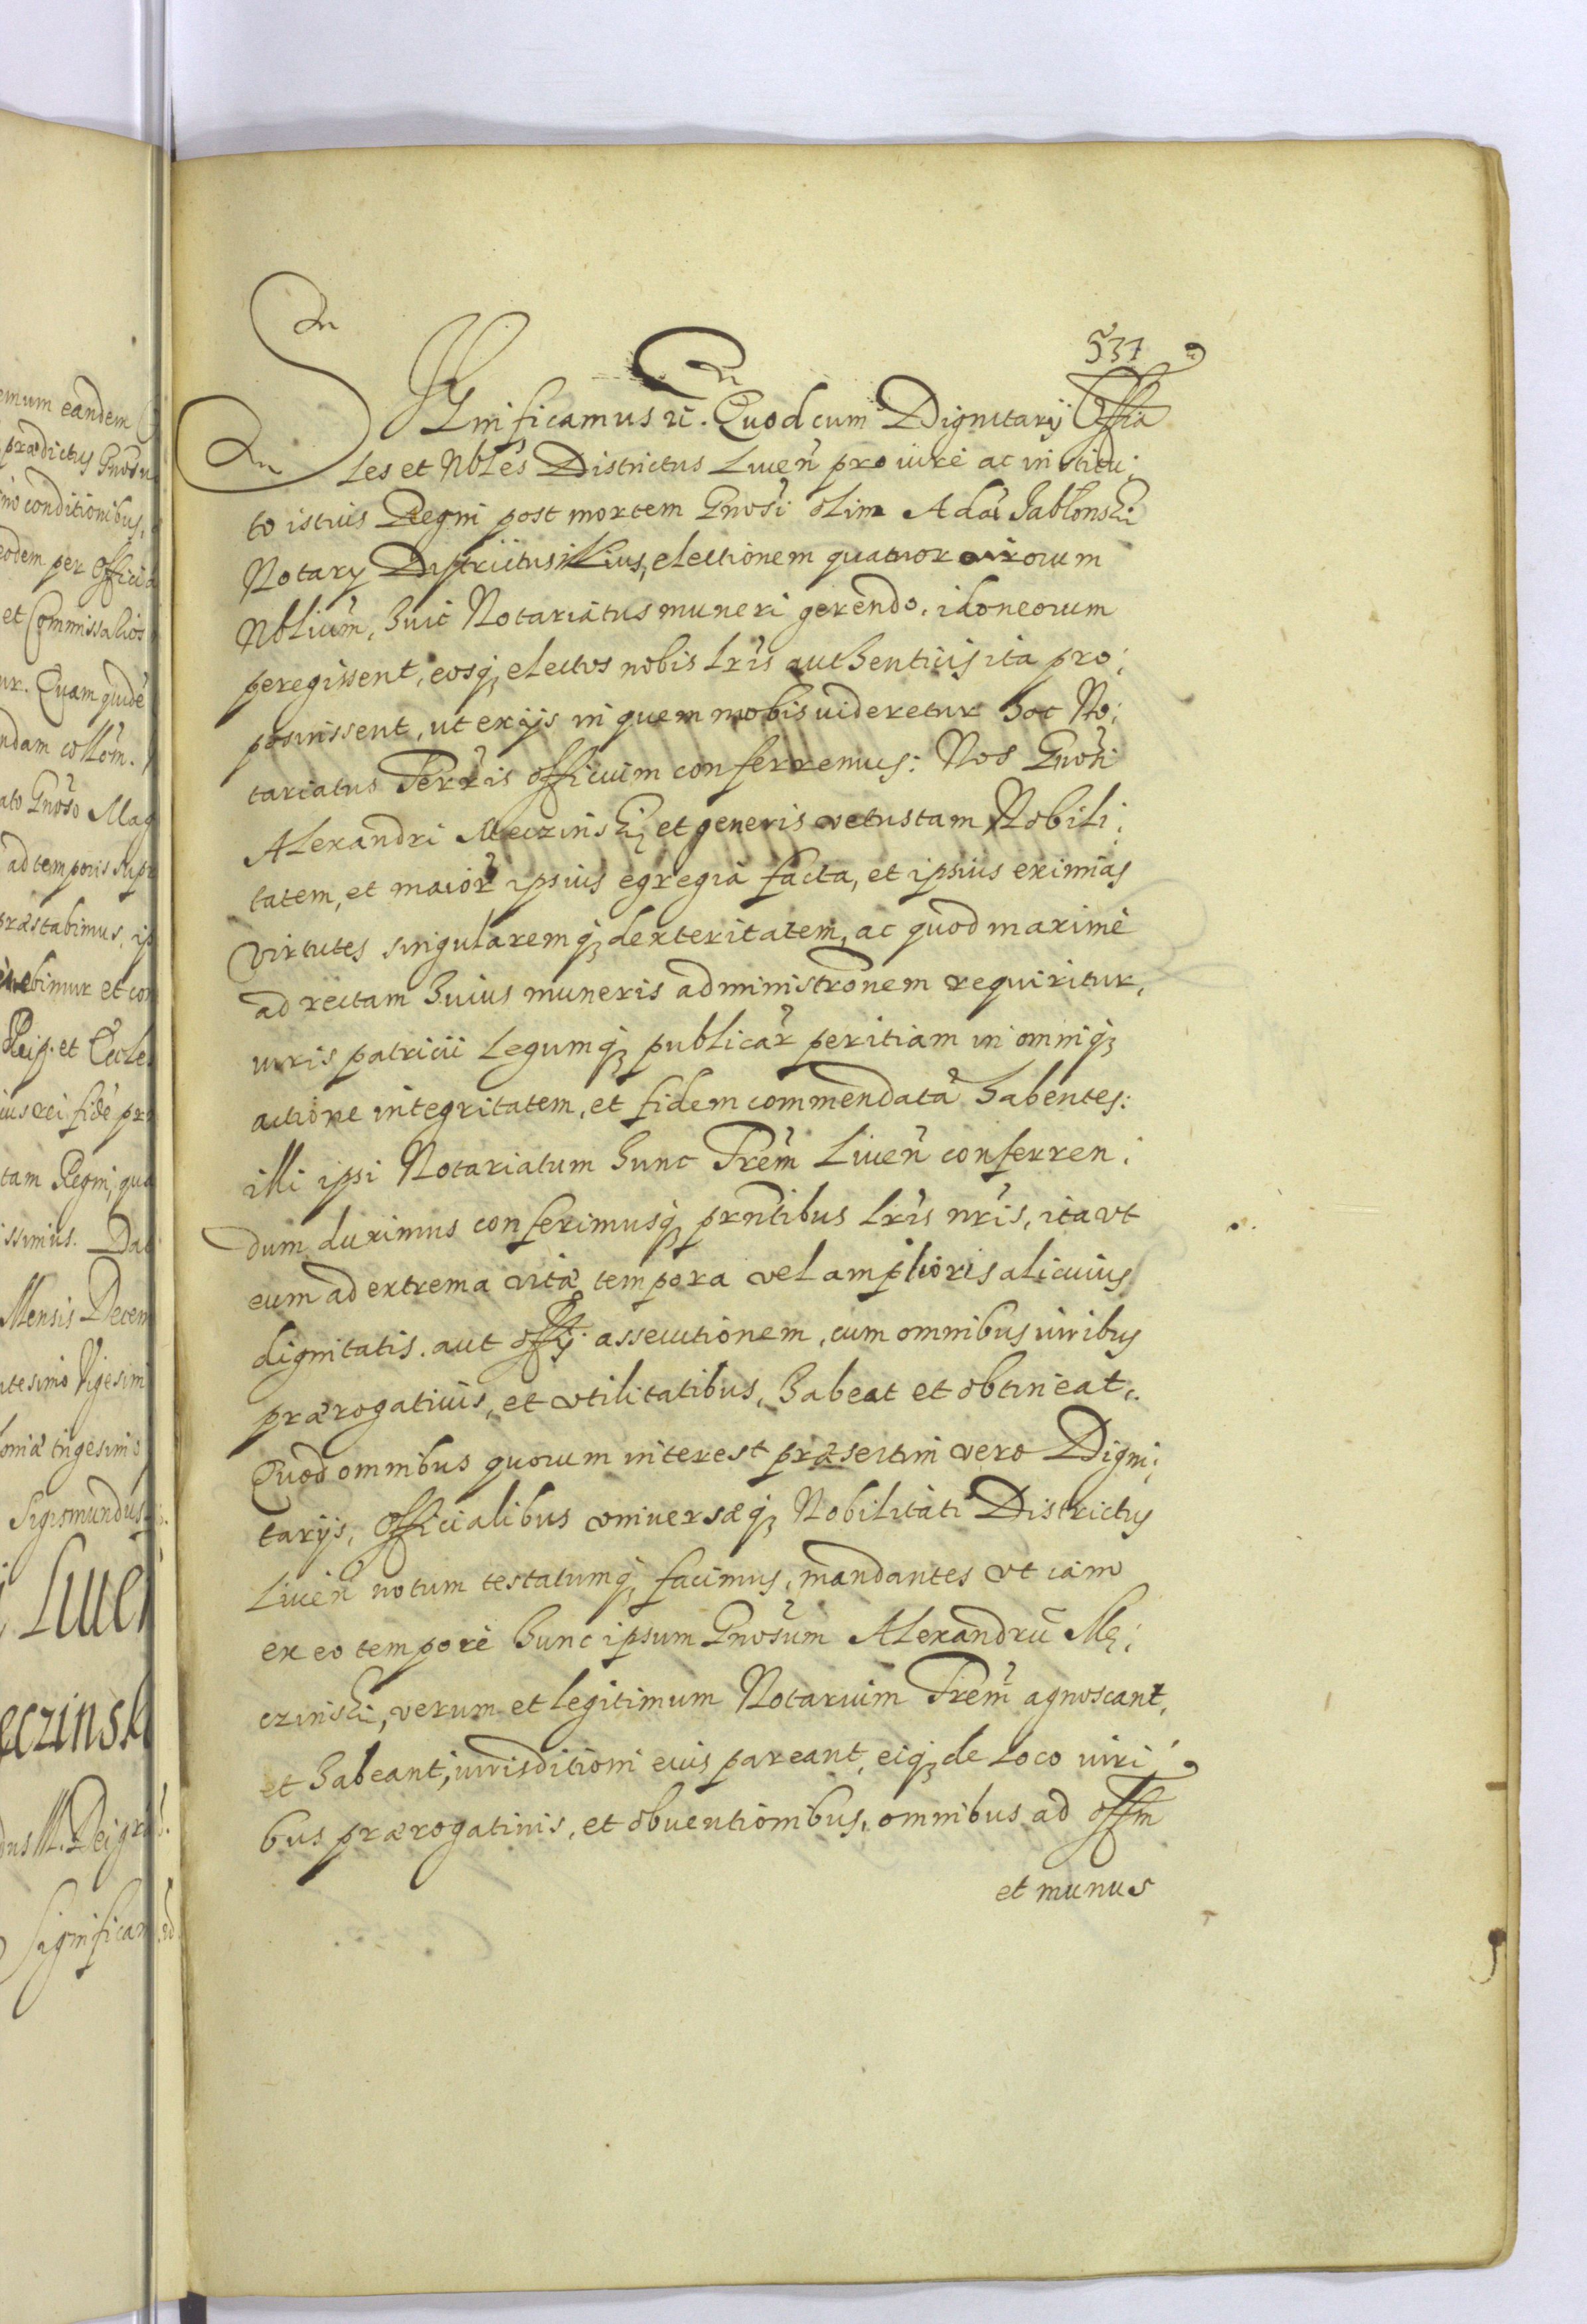 emum eandem
prædictus Gnosu
conditionibus,
eodem per Officia
et Commissalios
ur. Quam quidē
ndam collōm.
ato Gnōso Mag
ad temporis supr
præstabimus, ip
bimur et con
Reip. et Eccle
ius rei fidē pr
tam Regni, qua
issimus. Dat
Mensis Decem
ntesimo Vigesim
loniæ trigesimo
Sigismundus
Liuen
eczinsk
dus III. Dei gra
Significam
537
Significamus &c. Quod cum Dignitarij Officia
les et Nbles Districtus Liuen̄ pro iure ac institu:
to istius Regni post mortem Gnosi olim Adāi Jablonski
Notary Districtus illius, electionem quatuor virorum
Nblium̄, huic Notariatus muneri gerendo, idoneorum
peregissent, eosq; electos nobis Lrīs authenticis ita pro:
posuissent, ut ex ijs in quem nobis uideretur hoc No:
tariatus Terrīs officium conferremus: Nos Gnosi
Alexandri Meczinski, et generis vetustam Nobili:
tatem, et maior̄ ipsius egregia facta, et ipsius eximias
virtutes singularemq; dexteritatem, ac quod maximè
ad rectam huius muneris administrōnem requiritur,
iuris patricii Legumq; publicar̄ peritiam in omniq;
actione integritatem, et fidem commendatā habentes:
illi ipsi Notariatum hunc Trēm Liuen̄ conferren:
dum duximus conferimusq; prn̄tibus Lrīs nrīs, ita vt
eum ad extrema vitæ tempora vel amplioris alicuius
dignitatis aut offij assecutionem, cum omnibus iuribus
prærogatiuis, et vtilitatibus, habeat et obtineat.
Quod omnibus quorum interest præsertim vero Digni:
tarijs, Officialibus vniuersæq; Nobilitati Districtus
Liuen̄ notum testatumq; facimus, mandantes vt iam
ex eo tempore hunc ipsum Gnosum Alexandrū Me:
czinski, verum et legitimum Notarium Trēm agnoscant,
et habeant, iurisditioni eius pareant, eiq; de loco iuri
bus prærogatiuis, et obuentionibus, omnibus ad offm
et munus